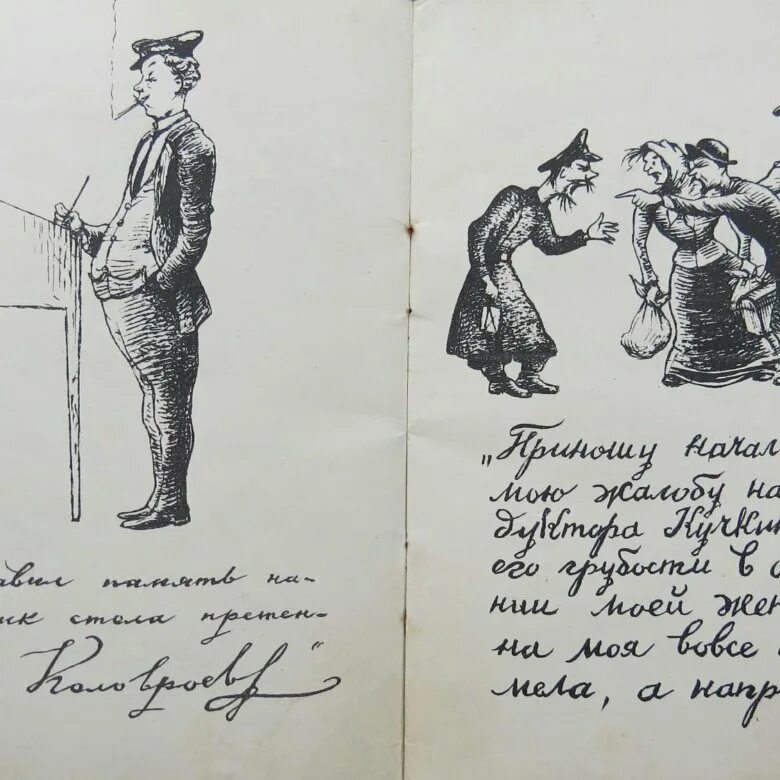 авил память на-
ик стола претен-
Коловроев"
„Приношу начал
мою жалобу на
дуктора Кучки
его грубости в о
нии моей жен
на моя вовсе
мела, а напр